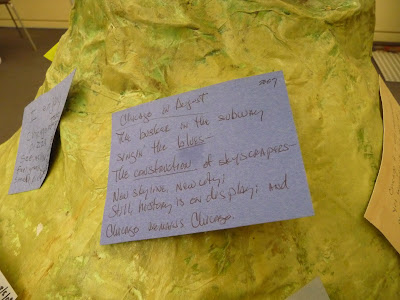 2007
Chicago in August
The busker in the subway
sings the blues—
The construction of skyscrapers—
New skyline, New city;
Still, history is on display; and
Chicago remains Chicago.